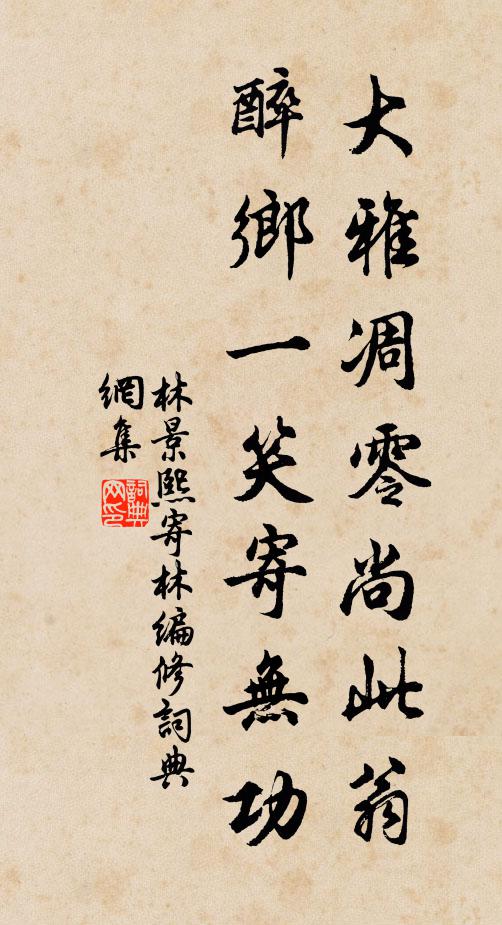 大雅凋零尚此翁
醉鄉一笑寄無功
林景熙寄林編修詞典
網集
詞典
网印